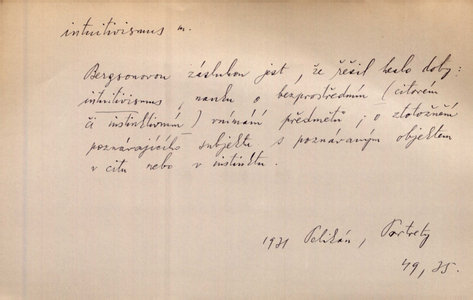 intuitivismus m.
Bergsonovou zásluhou jest, že řešil heslo doby:
intuitivismus, nauku o bezprostředním (citovém
či instinktivním) vnímání předmětů, o ztotožnění
poznávajícího subjektu s poznávaným objektem
v citu nebo v instinktu.
1931 Pelikán, Portréty
49, 35.